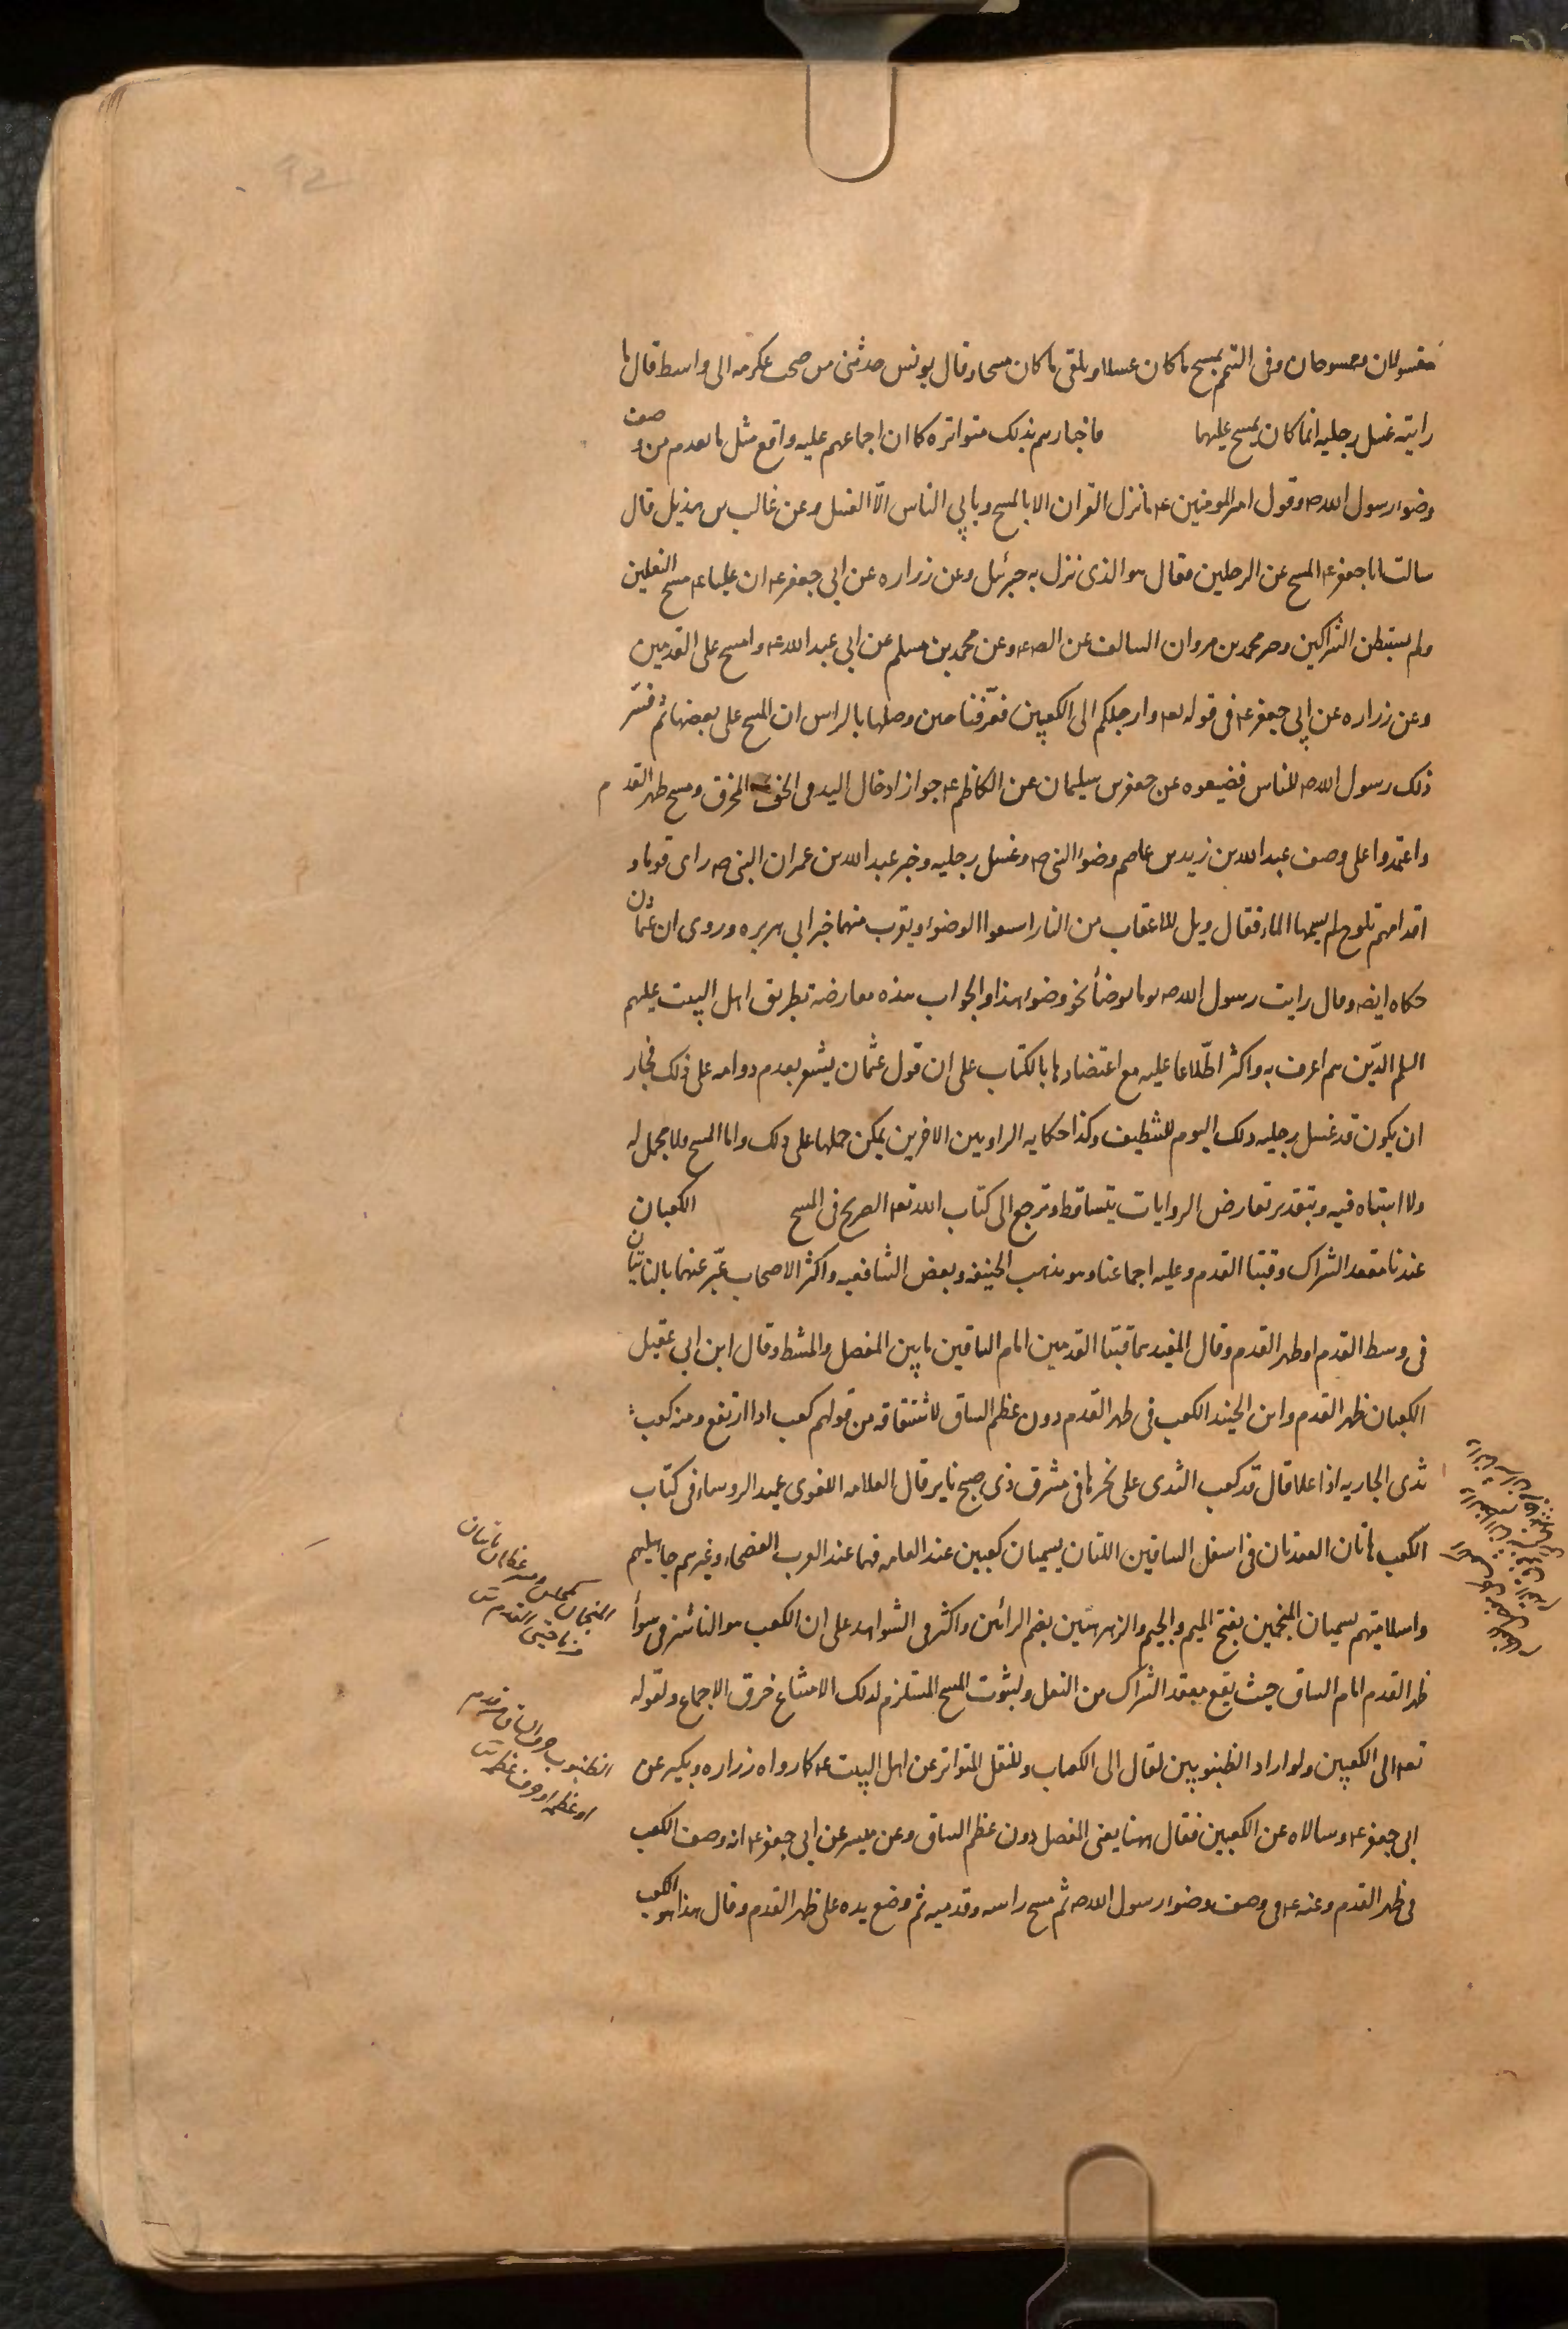 مغسولان وممسوحان وفى التيمم يمسح ما كان غسلا ويلقى ما كان مسحا وقال يونس حدثنى من صحب عكرمه الى واسط قال ما
رايته غسل رجليه انما كان يمسح عليهما واما اخبارهم بذلك متواتره كما ان اجماعهم عليه واقع مثل ما تقدم من وصف
وضوء رسول الله صه وقول امير المومنين عه ما نزل القران الا بالمسح ويابى الناس الّا الغسل وعن غالب بن هذيل قال
سالت ابا جعفر عه المسح عن الرجلين فقال هو الذى نزل به جبرئيل وعن زراره عن ابى جعفر عه ان عليا عه مسح النعلين
ولم يستبطن الشراكين وخبر محمد بن مروان السالف عن الصه عه وعن محمد بن مسلم عن ابى عبد الله عه وامسح على القدمين
وعن زراره عن ابى جعفر عه فى قوله تعه وارجلكم الى الكعبين فعرّفنا حين وصلها بالراس ان المسح على بعضها ثم فسّر
ذلك رسول الله صه للناس فضيعوه عن جعفر بن سليمان عن الكاظم عه جواز ادخال اليد فى الخف المخرق ومسح ظهر القدم
واعتمدوا على وصف عبد الله بن زيد بن عاصم وضوء النبى صه وغسل رجليه وخبر عبد الله بن عمر ان النبى صه راى قوما و
اقدامهم تلوح لم يمسها الماء فقال ويل للاعقاب من النار اسبغوا الوضوء ويقرب منهما خبر ابى هريره وروى ان عثمان
حكاه ايضه وقال رايت رسول الله صه يوما توضأ نحو وضوء هذا والجواب هذه معارضه بطريق اهل البيت عليهم
السلم الّذين هم اعرف به واكثر اطّلاعا عليه مع اعتضادها بالكتاب على ان قول عثمان يشعر بعدم دوامه على ذلك فجاز
ان يكون قد غسل رجليه ذلك اليوم للتنظيف وكذا حكايه الراويين الاخرين يمكن حملها على ذلك واما المسح فلا محمل له
ولا اشتباه فيه وبتقدير تعارض الروايات يتساقط وترجع الى كتاب الله تعه الصريح فى المسح الكعبان
عندنا معقد الشراك وقبتا القدم وعليه اجماعنا وهو مذهب الحنيفه وبعض الشافعيه واكثر الاصحاب عبّر عنهما بالناتيان
فى وسط القدم او ظهر القدم وقال المفيد هما قبتا القدمين امام الساقين ما بين المفصل والمشط وقال ابن ابى عقيل
الكعبان ظهر القدم وابن الجنيد الكعب فى ظهر القدم دون عظم الساق لاشتقاقه من قولهم كعب اذا ارتفع ومنه كعب
ثدى الجاريه اذا علا قال قد كعب الثدى على نحرها فى مشرق ذى صبح ناير قال العلامه اللغوى عميد الروساء فى كتاب
الكعب هاتان العقدتان فى اسفل الساقين اللتان يسميان كعبين عند العامه فهما عند العرب الفصحاء وغيرهم جاهليهم
واسلاميتهم يسميان المنجمين بفتح الميم والجيم والرهرهتين بضم الرائين واكثر فى الشواهد على ان الكعب هو الناشز فى سوأ
ظهر القدم امام الساق حيث يقع معقد الشراك من النعل ولثبوت المسح المستلزم لذلك لامتناع خرق الاجماع ولقوله
تعه الى الكعبين ولو اراد الظنبوبين لقال الى الكعاب وللنقل المتواتر عن اهل البيت عه كما رواه زراره وبكير عن
ابى جعفر عه وسالاه عن الكعبين فقال ههنا يعنى المفصل دون عظم الساق وعن ميسر عن ابى جعفر عه انه وصف الكعب
فى ظهر القدم وعنه عه فى وصف وضوء رسول الله صه ثم مسح راسه وقدميه ثم وضع يده على ظهر القدم وقال هذا هو الكعب
المنجمان كمجلس ومنبر عظمان ناتيان
من ناحيتى القدم
الظنبوب حرف الساق من قدم
او عظمه او حرف عظمه